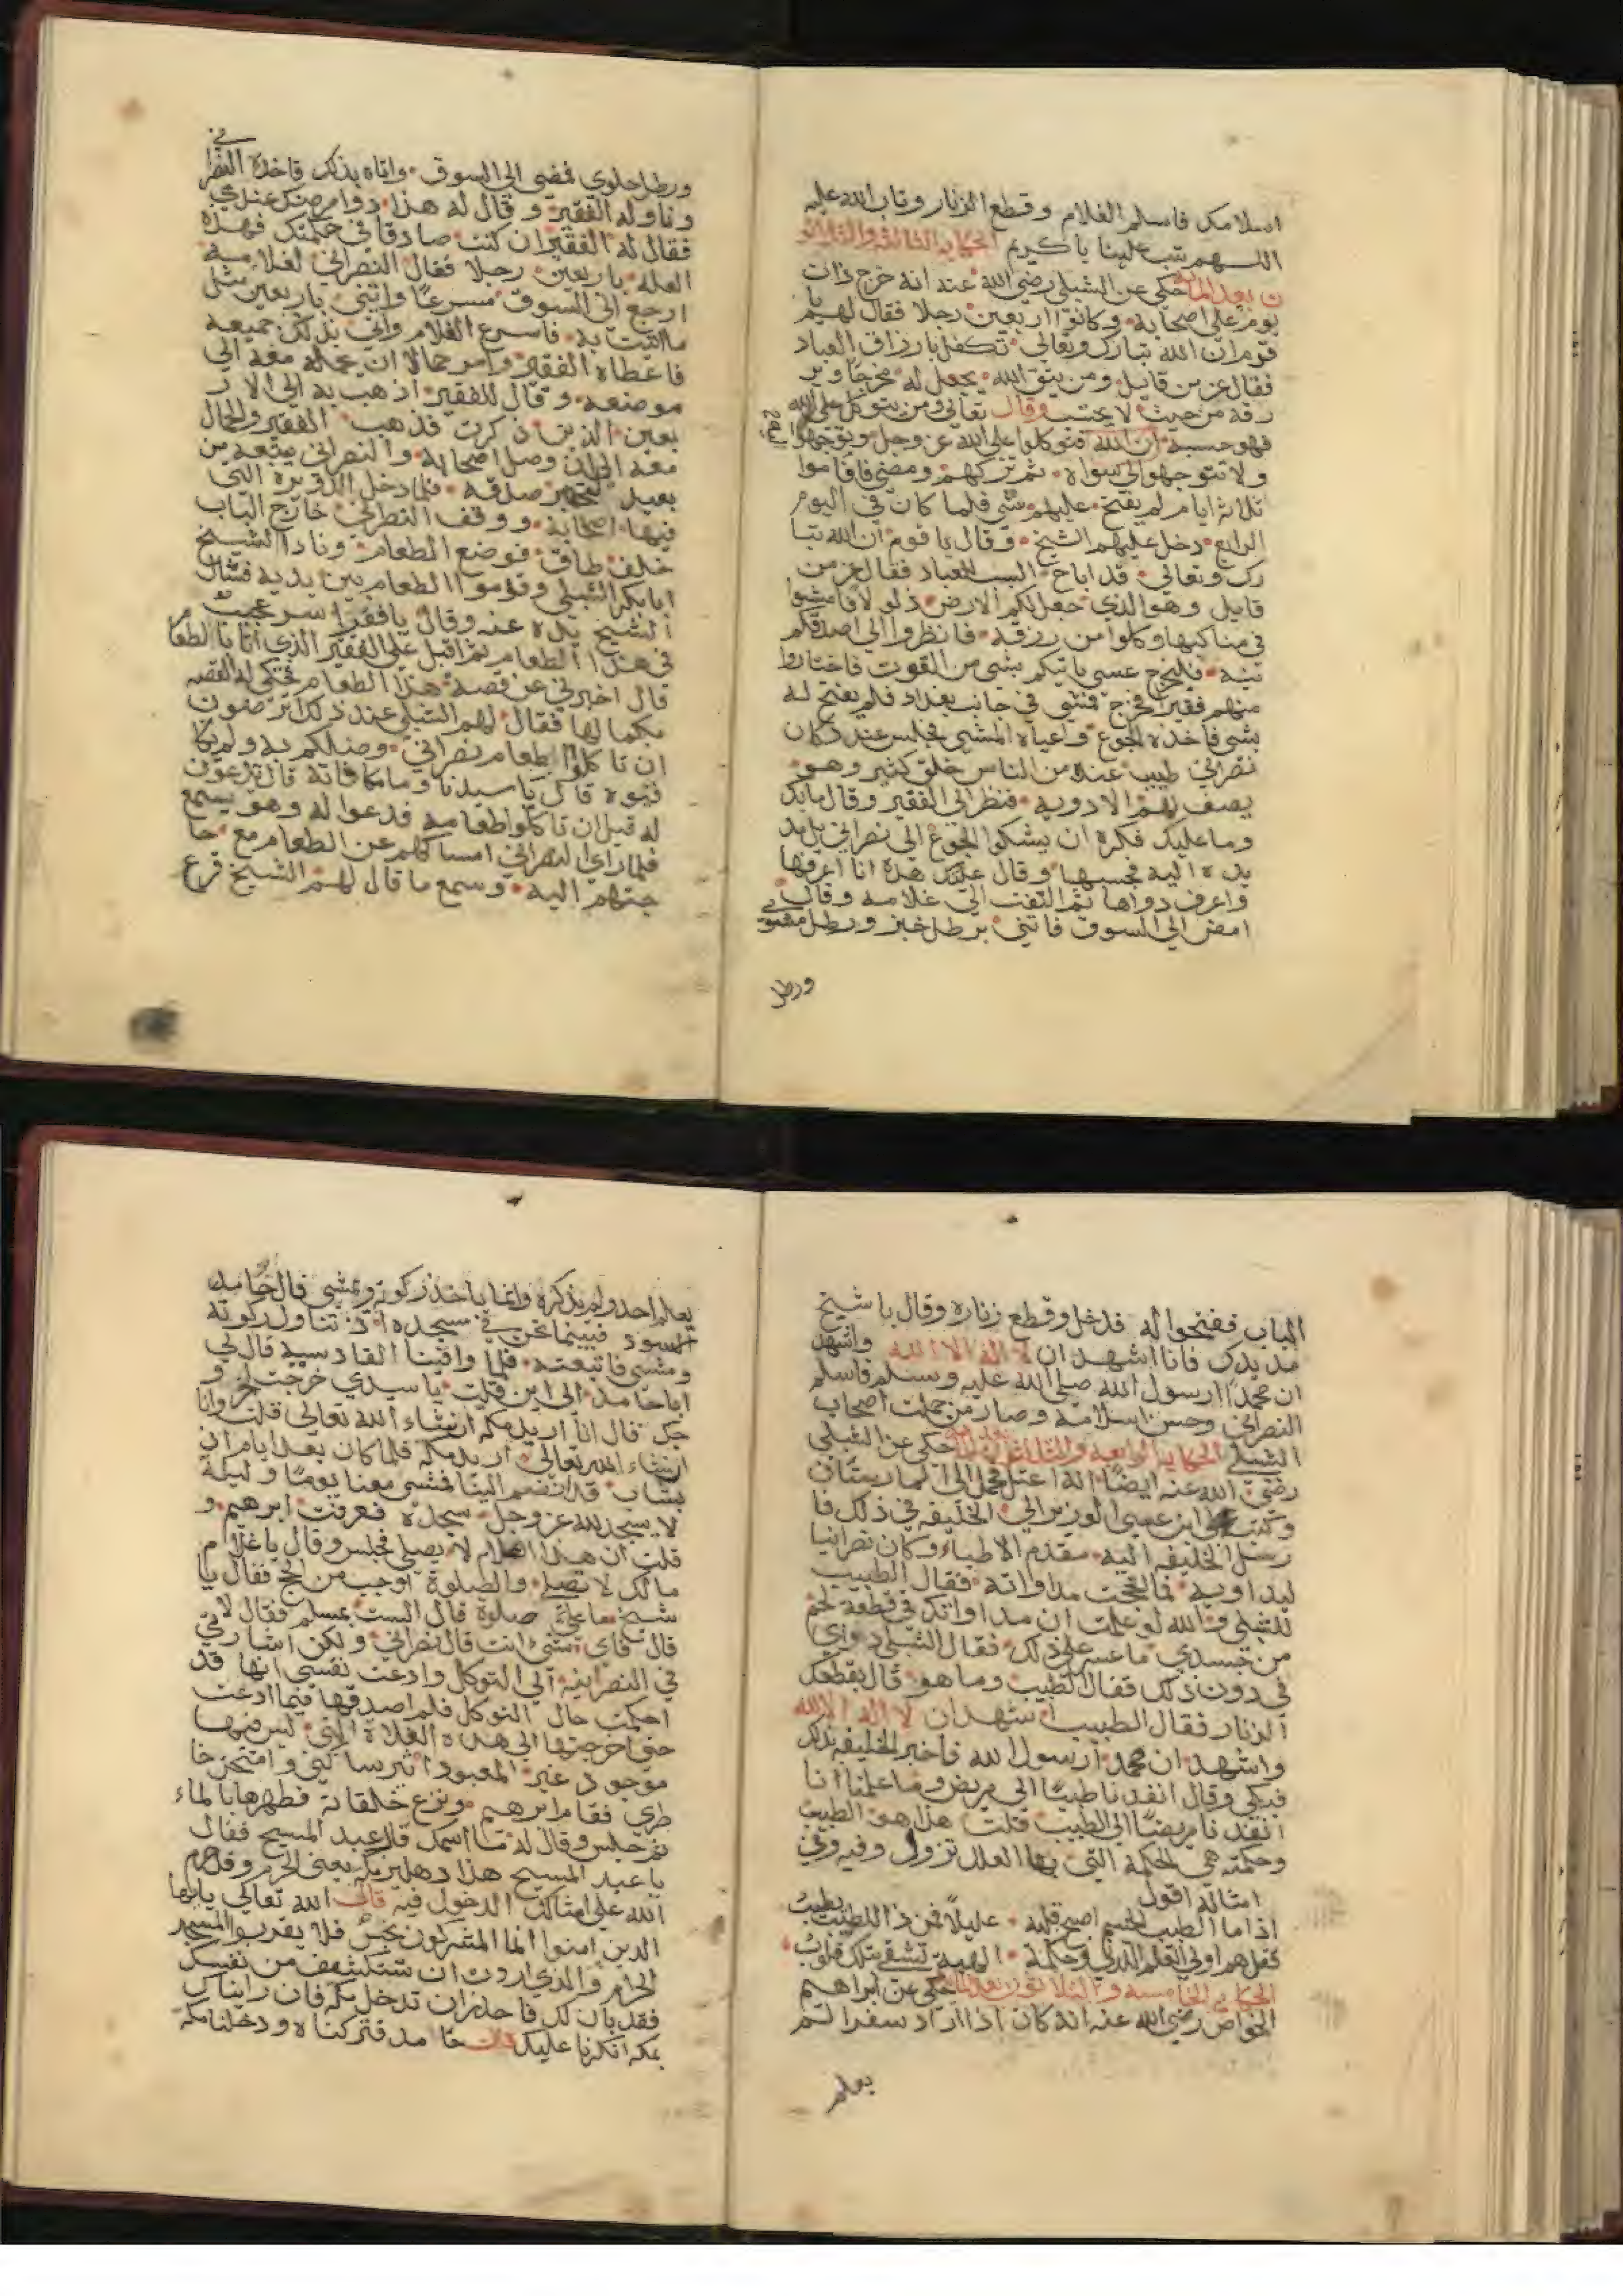 اسلامك فاسلم الغلام وقطع الزنار وتاب الله عليه
اللهم تب علينا يا كريم الحكاية الثالثة والثلاثو
ن بعد الماية حكي عن الشبلي رضي الله عنه انه خرج ذات
يوم علي اصحابه وكانوا اربعين رجلا فقال لهم يا
قوم ان الله تبارك وتعالي تكفل بارزاق العباد
فقال عز من قايل ومن يتق الله يجعل له مخرجا وير
زقه من حيث لا يحتسب وقال تعالي ومن يتوكل علي الله
فهو حسبه ان الله فتوكلوا علي الله عز وجل وتوجهوا
ولا تتوجهوا الي سواه ثم تركهم ومضي فاقاموا
ثلاثة ايام لم يفتح عليهم بشي فلما كان في اليوم
الرابع دخل عليهم الشيخ وقال يا قوم ان الله تبا
رك وتعالي قد اباح السبب للعباد فقال عز من
قايل وهو الذي جعل لكم الارض ذلولا فامشوا
في مناكبها وكلوا من رزقه فانظروا الي اصدقكم
نية فليخرج عسي ياتيكم بشي من القوت فاختاروا
منهم فقيرا فخرج فمشي في جانب بغداد فلم يفتح له
بشي فاخذه الجوع واعياه المشي فجلس عند دكان
نصراني طبيب عنده من الناس خلق كثير وهو
يصف لهم الادوية فنظر الي الفقير وقال ما بك
وما عليك فكره ان يشكوا الجوع الي نصراني بل مد
يده اليه فجسها وقال علتك هذه انا اعرفها
واعرف دواها ثم التفت الي غلامه وقال
امض الي السوق فاتني برطل خبز ورطل مشوي
ورطل
ورطل حلوي فمضي الي السوق واتاه بذلك فاخذه النصرا
ني
وناوله الفقير وقال له هذا دوا مرضك عندي
فقال له الفقير ان كنت صادقا في حكمتك فهذه
العله باربعين رجلا فقال النصراني لغلامه
ارجع الي السوق مسرعا واتني باربعين مثل
ما اتيت به فاسرع الغلام واتي بذلك جميعه
فاعطاه الفقير وامر حمالا ان يحمله معه الي
موضعه وقال للفقير اذهب به الي الار
بعين الذين ذكرت فذهب الفقير والحمال
معه الي ان وصل اصحابه والنصراني يتبعه من
بعيد ليختبر صدقه فلما دخل الدويرة التي
فيها اصحابه ووقف النصراني خارج الباب
خلف طاق فوضع الطعام ونادا الشيخ
ابا بكر الشبلي وقدموا الطعام بين يديه فشال
الشيخ يده عنه وقال يا فقرا سر عجيب
في هذا الطعام ثم اقبل علي الفقير الذي اتا بالطعام
قال اخبرني عن قصة هذا الطعام فحكي له القصه
بكمالها فقال لهم الشبلي عند ذلك اترضون
ان تاكلوا طعام نصراني وصلكم به ولم تكا
فئوه قال يا سيدنا وما مكافاته قال تدعون
له قبل ان تاكلوا طعامه فدعوا له وهو يسمع
فلما راي النصراني امساكهم عن الطعام مع حا
جتهم اليه وسمع ما قال لهم الشيخ قرع
الباب ففتحوا له فدخل وقطع زناره وقال يا شيخ
مد يدك فانا اشهد ان لا اله الا الله واشهد
ان محمدا رسول الله صلي الله عليه وسلم فاسلم
النصراني وحسن اسلامه وصار من جملت اصحاب
الشبلي الحكاية الرابعه والثلاثون بعد الماية حكي عن الشبلي
رضي الله عنه ايضا انه اعتل فحمل الي المارستان
وكتب علي ابن عيسي الوزير الي الخليفه في ذلك فا
رسل الخليفه اليه مقدم الاطباء وكان نصرانيا
ليداويه فما انجحت مداواته فقال الطبيب
للشبلي والله لو علمت ان مداواتك في قطعة لحم
من جسدي ما عسر علي ذلك فقال الشبلي دوائي
في دون ذلك فقال الطبيب وما هو قال بقطعك
الزنار فقال الطبيب اشهد ان لا اله الا الله
واشهد ان محمدا رسول الله فاخبر الخليفه بذلك
فبكي وقال انفدنا طبيبا الي مريض وما علمنا انا
انفدنا مريضا الي الطبيب قلت هذا هو الطبيب
وحكمته هي الحكمة التي بها العلل تزول وفيه وفي
امثاله اقول
اذا ما الطبيب الجسم اصبح قلبه عليلا فمن ذا للطبيب يطبب
فقل هم اولي العلم اللدني وحكمة الهية تشفي بتلك قلوب
الحكاية الخامسة والثلاثون بعد الماية حكي عن ابراهيم
الخواص رضي الله عنه انه كان اذا اراد سفرا لم
يعلم
يعلم احد ولم يذكره وانما ياخذ ركوته ويمشي قال حامد
الاسود فبينما نحن في مسجده اذ تناول ركوته
ومشي فاتبعته فلما وافينا القادسية قال لي
يا حامد الي اين قلت يا سيدي خرجت لخرو
جك قال انا اريد مكه ان شاء الله تعالي قلت وانا
ان شاء الله تعالي اريد مكه فلما كان بعد ايام اذ
بشاب قد انضم الينا فمشي معنا يوما وليلة
لا يسجد لله عز وجل سجدة فعرفت ابرهيم و
قلت ان هذا الغلام لا يصلي فجلس وقال يا غلام
مالك لا تصلي والصلوة اوجب من الحج فقال يا
شيخ ما علي صلوة قال الست بمسلم فقال لا
قال فاي شئ انت قال نصراني ولكن اشارتي
في النصرانيه الي التوكل وادعت نفسي انها قد
احكمت حال التوكل فلم اصدقها فيما ادعت
حتي اخرجتها الي هذه الفلاة التي ليس فيها
موجود غير المعبود اثير ساكني وامتحن خا
طري فقام ابرهيم ونزع خلقانه فطهرها بالماء
ثم جلس وقال له ما اسمك قال عبد المسيح فقال
يا عبد المسيح هذا دهليز مكه يعني الحرم وقد حرم
الله علي امثالك الدخول فيه قال الله تعالي يا ايها
الذين امنوا انما المشركون نجس فلا يقربوا المسجد
الحرام والذي اردت ان تستكشفه من نفسك
فقد بان لك فاحذر ان تدخل مكه فان رايناك
بمكه انكرنا عليك قال حامد فتركناه ودخلنا مكه